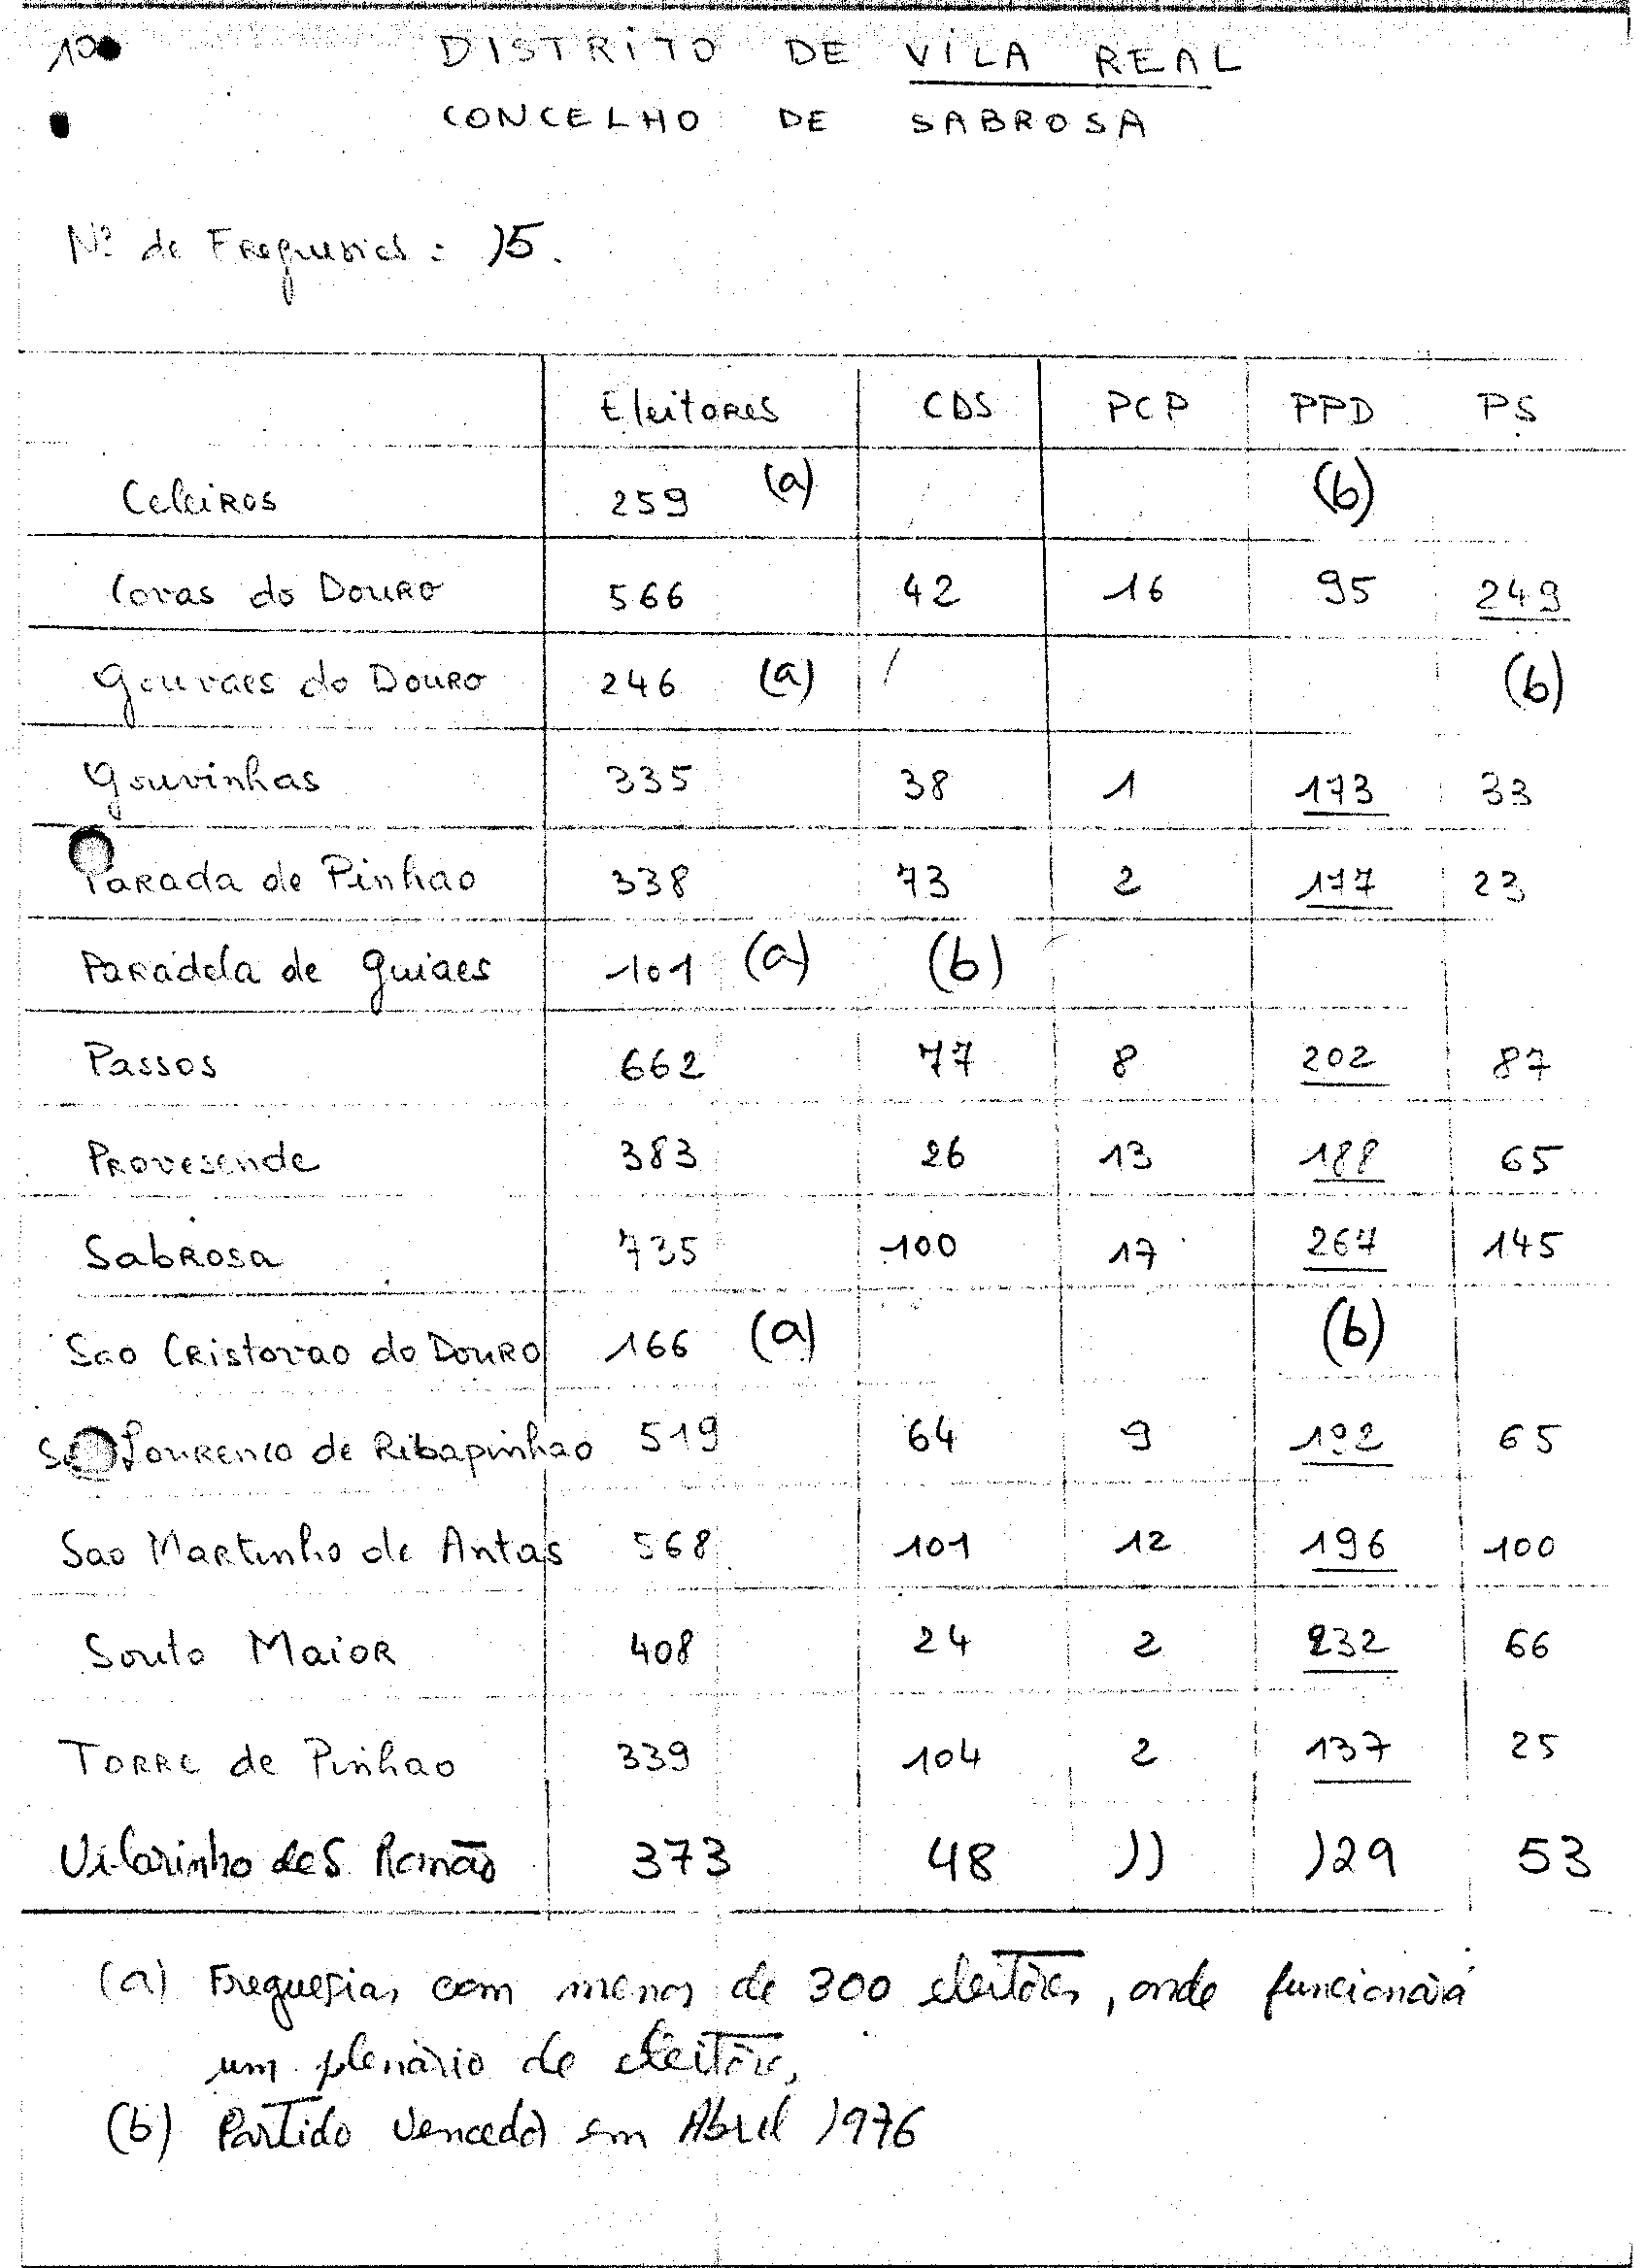 DISTRITO DE VILA REAL
CONCELHO DE SABROSA
Nº de Freguesias: 15.
Eleitores CDS PCP PPD PS
Celeiros 259 (a) (b)
Covas do Douro 566 42 16 95 249
Gouvaes do Douro 246 (a) (b)
Gouvinhas 335 38 1 173 33
Parada de Pinhao 338 73 2 177 23
Paradela de Guiaes 101 (a) (b)
Passos 662 77 8 202 87
Provesende 383 26 13 188 65
Sabrosa 735 100 17 267 145
Sao Cristovao do Douro 166 (a) (b)
Lourenco de Ribapinhao 519 64 9 65
Sao Martinho de Antas 568 101 12 196 100
Souto Maior 408 24 2 232 66
Torre de Pinhao 339 104 2 137 25
Vilarinho de S. Romão 373 48 11 129 53
(a) Freguesias com menos de 300 eleitores, onde funcionará
um plenário de eleitores
(b) Partido vencedor em Abril 1976